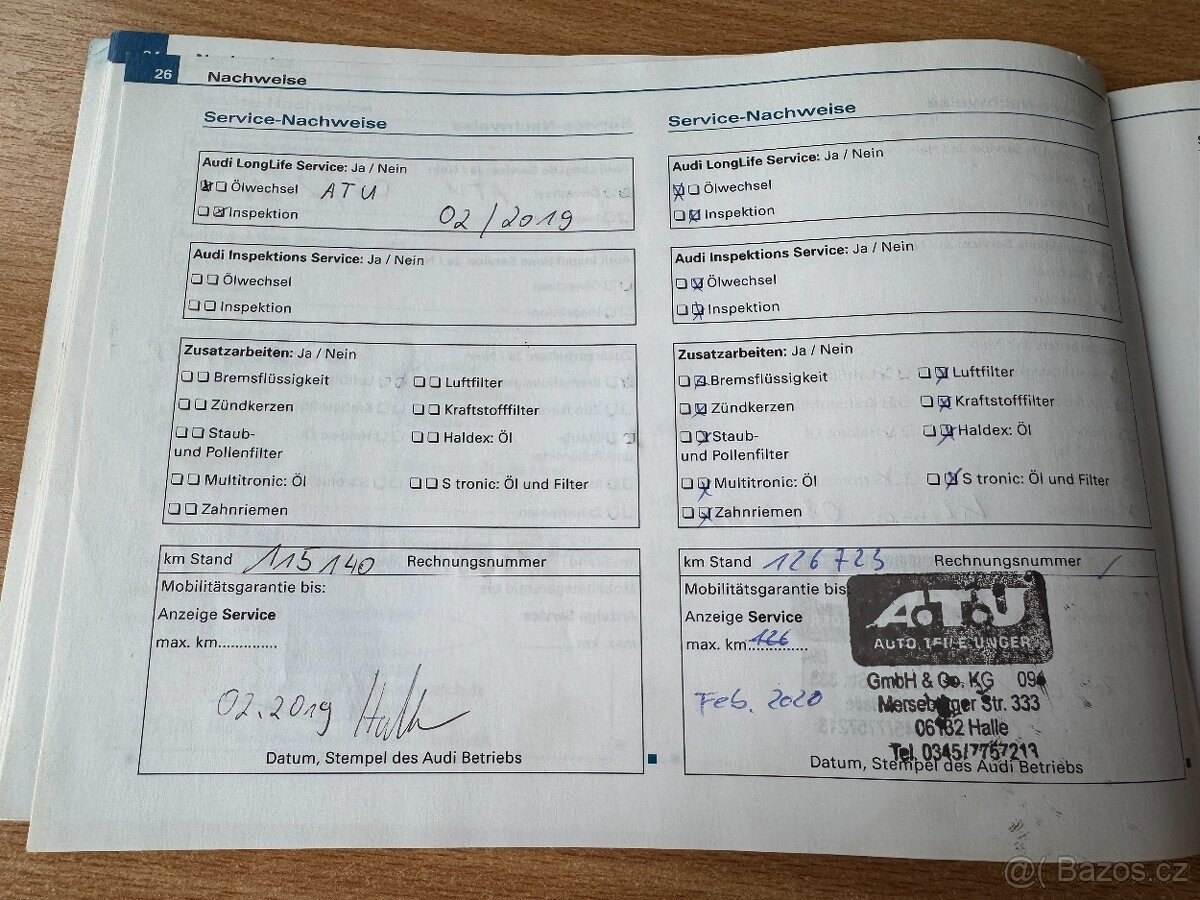 26 Nachweise
Service-Nachweise
Audi LongLife Service: Ja / Nein
Ölwechsel ATU
Inspektion 02/2019
Audi Inspektions Service: Ja / Nein
Ölwechsel
Inspektion
Zusatzarbeiten: Ja / Nein
Bremsflüssigkeit Luftfilter
Zündkerzen Kraftstofffilter
Staub- Haldex: Öl
und Pollenfilter
Multitronic: Öl S tronic: Öl und Filter
Zahnriemen
km Stand 115140 Rechnungsnummer
Mobilitätsgarantie bis:
Anzeige Service
max. km..............
02.2019
Datum, Stempel des Audi Betriebs
Service-Nachweise
Audi LongLife Service: Ja / Nein
Ölwechsel
Inspektion
Audi Inspektions Service: Ja / Nein
Ölwechsel
Inspektion
Zusatzarbeiten: Ja / Nein
Bremsflüssigkeit Luftfilter
Zündkerzen Kraftstofffilter
Staub- Haldex: Öl
und Pollenfilter
Multitronic: Öl S tronic: Öl und Filter
Zahnriemen
km Stand 126723 Rechnungsnummer
Mobilitätsgarantie bis:
Anzeige Service
max. km 126
Feb. 2020
A.T.U
AUTO TEILE UNGER
GmbH & Co. KG 094
Merseburger Str. 333
06132 Halle
Tel. 0345/7757213
Datum, Stempel des Audi Betriebs
@( Bazos.cz